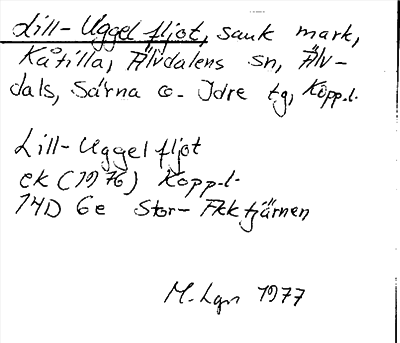 Lill-Uggelfljot, sank mark,
Kåtilla, Älvdalens sn, Älv-
dals, Särna o. Idre tg, Kopp.l.
Lill-Uggelfljot
ek (1976) Kopp.l.
14D 6e Stor-Akktjärnen
M. Lgn 1977